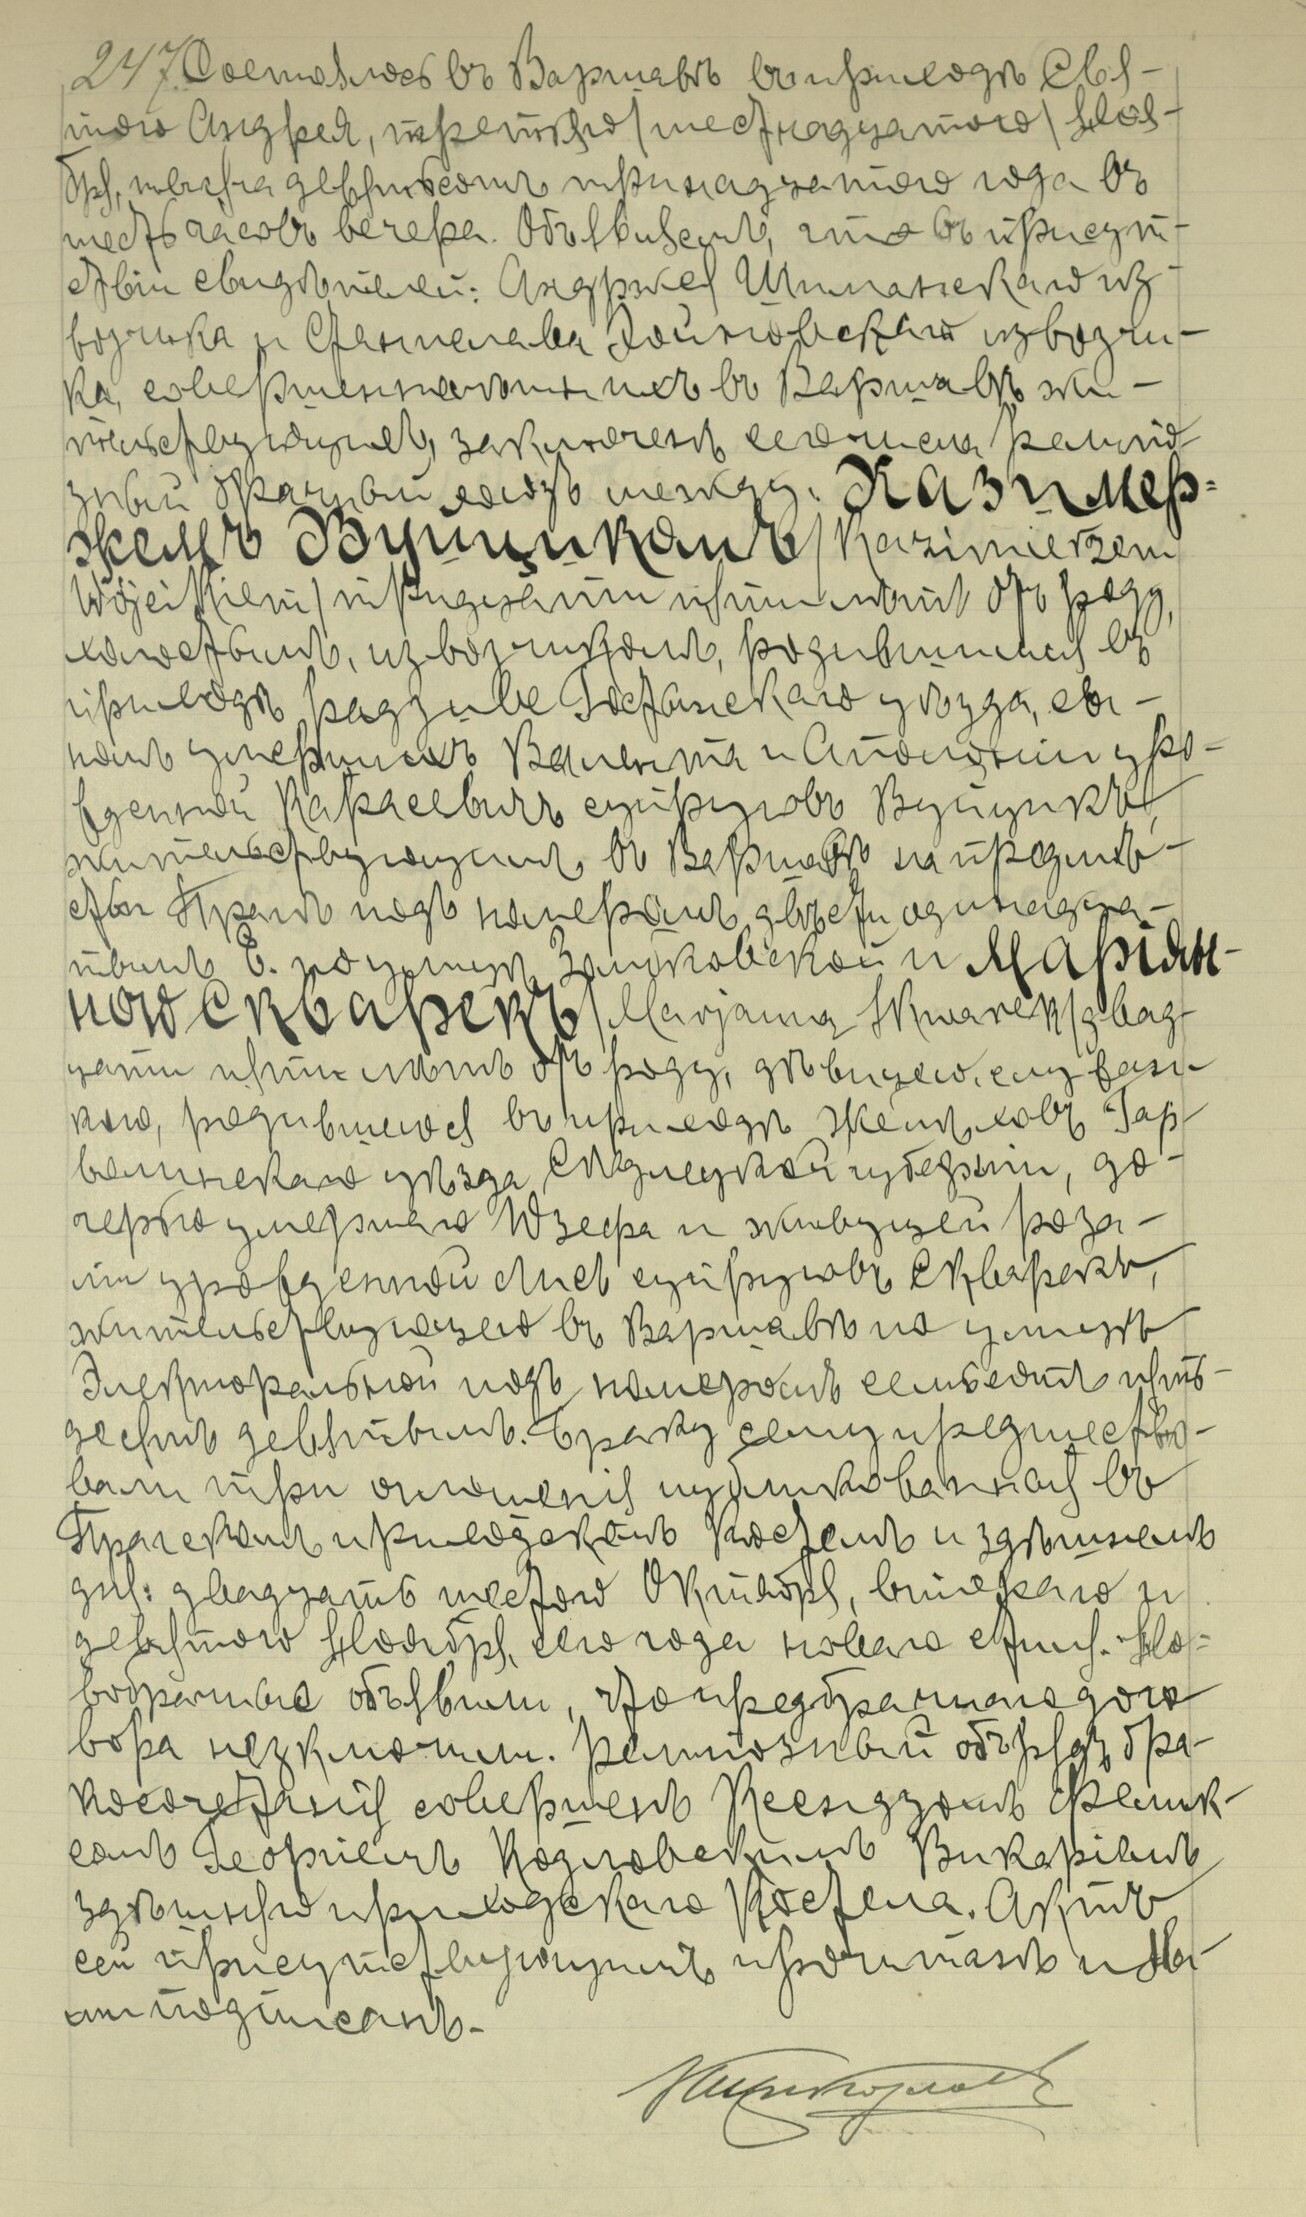 247. Состоялось въ Варшавѣ въ приходѣ Свя-
того Андрея, третьяго /шестнадцатого/ Ноя-
бря, тысяча девятьсотъ тринадцатого года въ
шесть часовъ вечера. Объявляемъ, что въ присут-
ствіи свидѣтелей: Андржея Шиманскаго из-
возчика и Станислава извозчи-
ка, совершеннолѣтнихъ въ Варшавѣ жи-
тельствующихъ, заключенъ сего числа религіо-
зный брачный союзъ между: Казимер-
жемъ Вуйцикомъ /Kazimierzem
Wójcikiem/ тридцати пяти лѣтъ отъ роду,
холостымъ, извозчикомъ, родившимся въ
приходѣ Радзиве Гостынскаго уѣзда, сы-
номъ умершихъ Валента и Аполоніи уро-
жденной Карасевичъ супруговъ Вуйцикъ,
жительствующимъ въ Варшавѣ на предмѣ-
стьи Праге подъ номеромъ двѣсти одинадца-
тымъ Б. по улицѣ Зомбковской и Маріян-
ною Скварекъ /Marjanną Skwarek/ двад-
цати пяти лѣтъ отъ роду, дѣвицею, служан-
кою, родившеюся въ приходѣ Желеховъ Гар-
волинскаго уѣзда Сѣдлецкой губерніи, до-
черью умершаго Юзефа и живущей Роза-
ліи урожденной Лисъ супруговъ Скварекъ,
жительствующею въ Варшавѣ по улицѣ
Электоральной подъ номеромъ семьсотъ пять-
десятъ девятымъ. Браку сему предшество-
вали три оглашенія публикованныя въ
Пражскомъ приходскомъ Костелѣ и здѣшнемъ
дня: двадцать шестого Октября, второго и
девятого Ноября, сего года новаго стиля. Но-
вобрачные объявили, что предбрачнаго дого
вора незключили. Религіозный обрядъ бра-
косочетанія совершенъ Ксендзомъ Фелик-
сомъ Козловскимъ Викаріемъ
здѣшняго приходскаго Костела. Актъ
сей присутствующимъ прочитанъ и На-
ми подписанъ.-